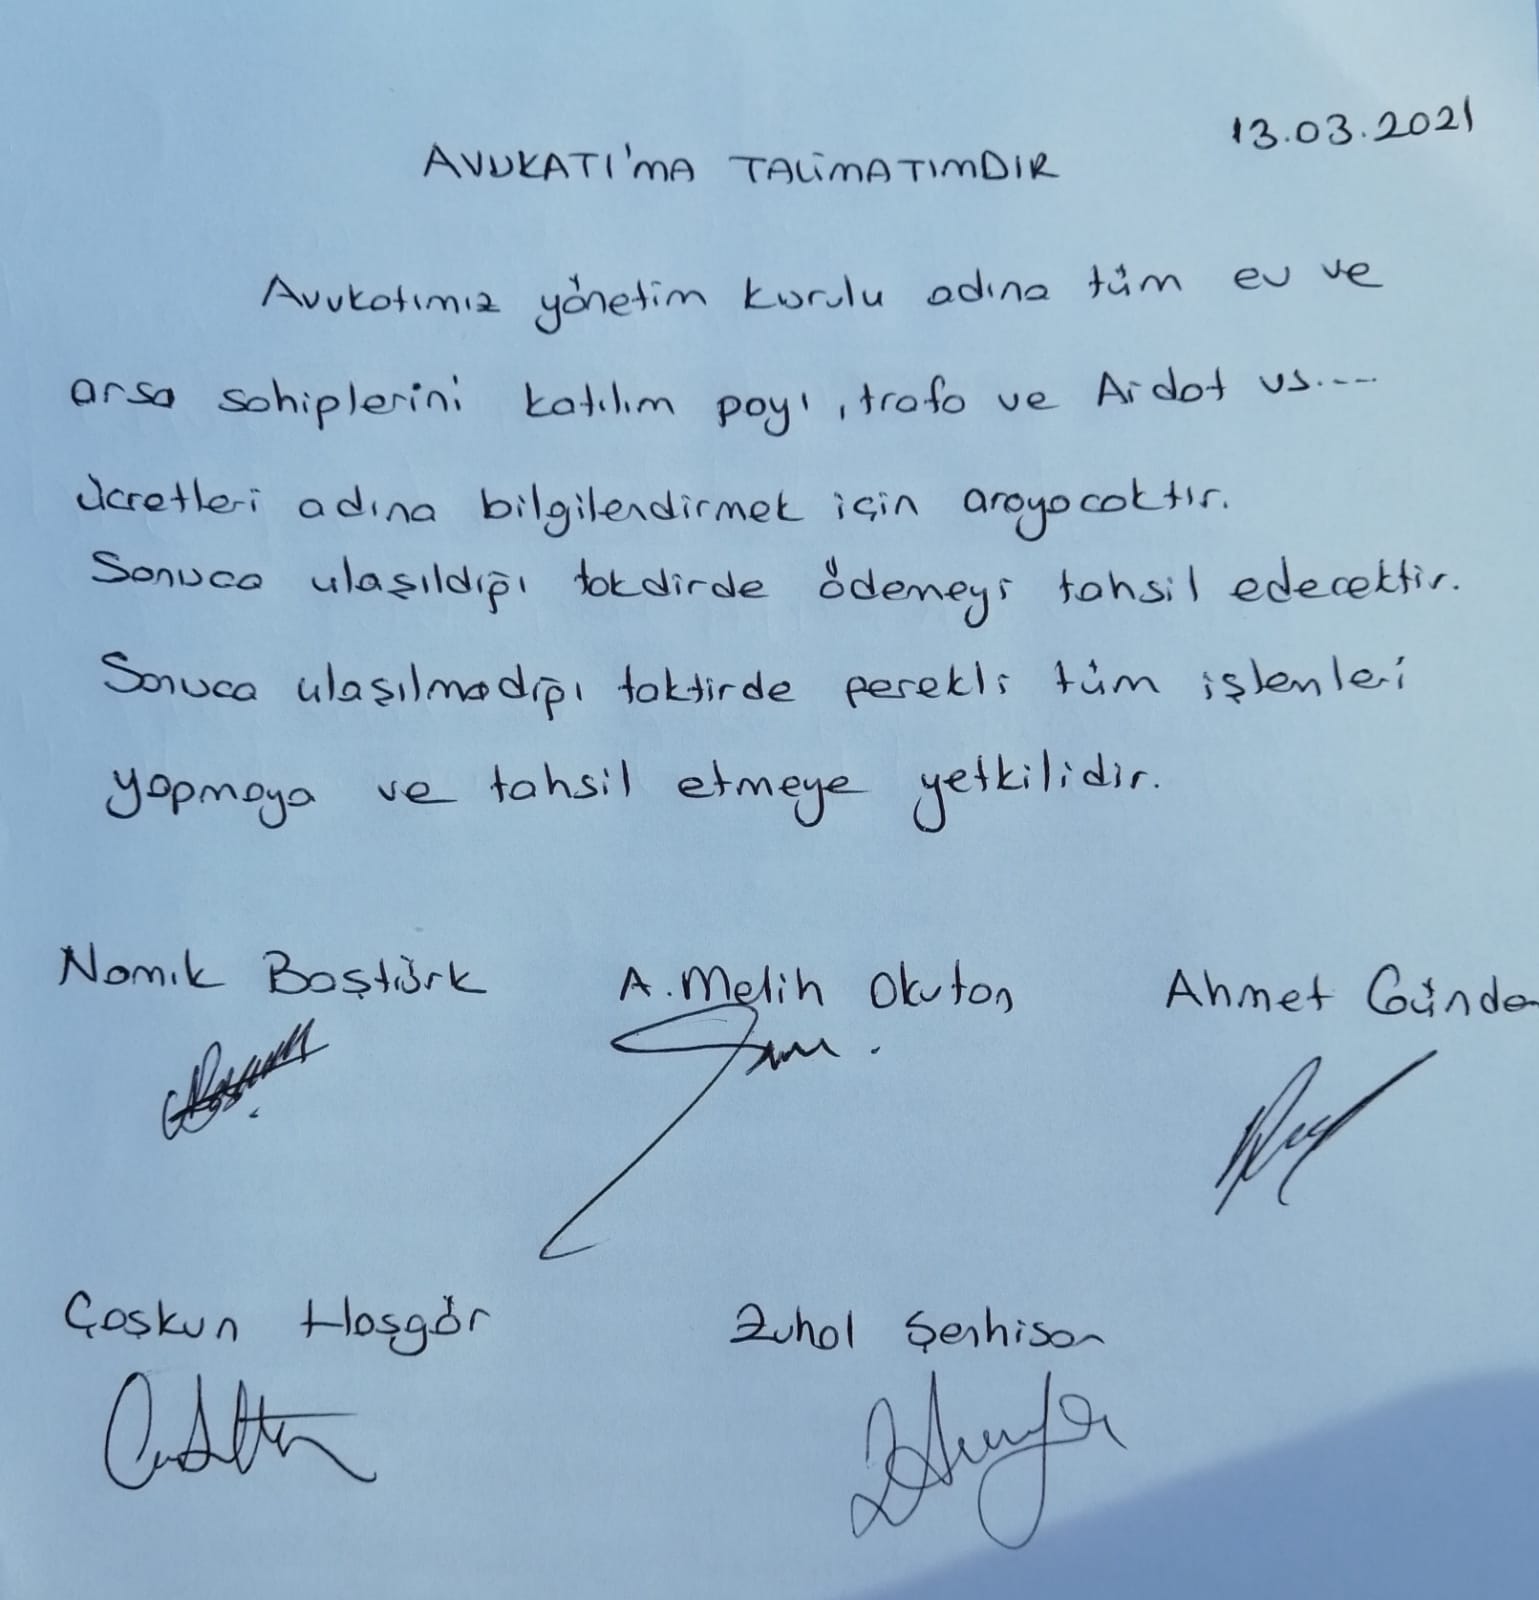 13.03.2021
AVUKATI'MA TALİMATIMDIR
Avukatımız yönetim kurulu adına tüm ev ve
arsa sahiplerini katılım payı, trafo ve Aidat vs....
ücretleri adına bilgilendirmek için arayacaktır.
Sonuca ulaşıldığı takdirde ödemeyi tahsil edecektir.
Sonuca ulaşılmadığı taktirde gerekli tüm işlemleri
yapmaya ve tahsil etmeye yetkilidir.
Namık Baştürk A. Melih Okutan Ahmet
Coşkun Hoşgör Zuhal Şenhisar